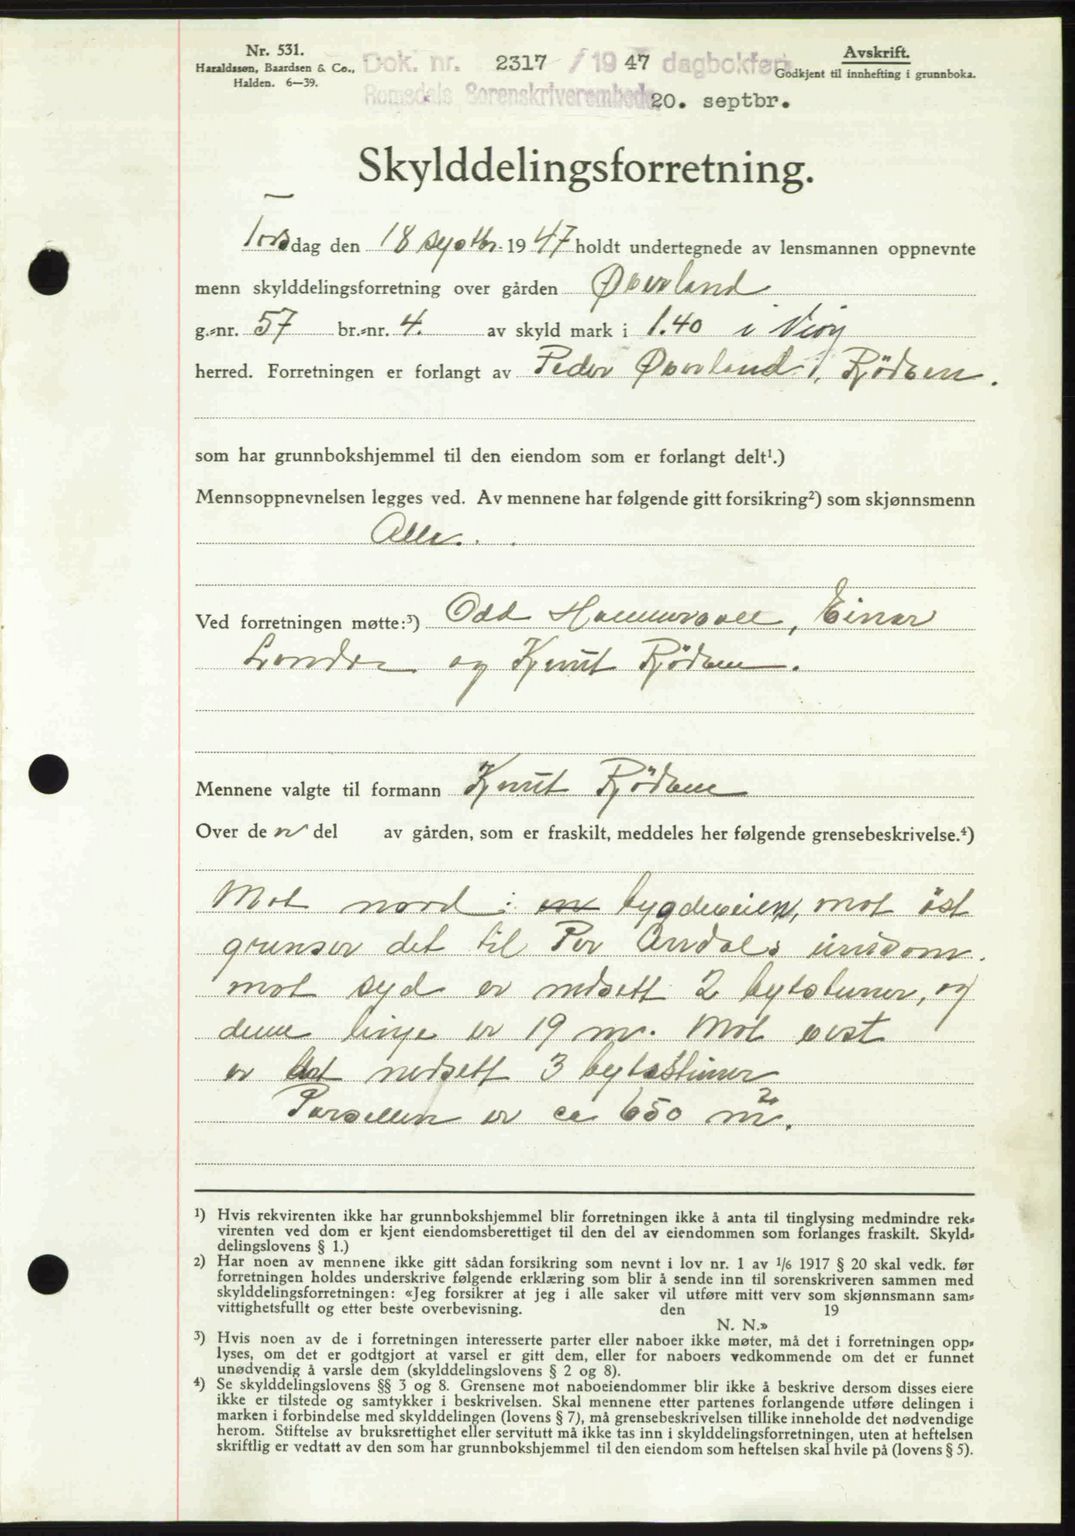 Nr. 531.
Haraldssen, Baardsen & Co.,
Halden. 6—39.
Dok. nr. 2317 /19 47 dagboken
Romsdals Sorenskriverembede
20. septbr.
Avskrift.
Godkjent til innhefting i grunnboka.
Skylddelingsforretning.
Torsdag den 18 septbr. 1947 holdt undertegnede av lensmannen oppnevnte
menn skylddelingsforretning over gården Øverland
g.-nr. 57 br.-nr. 4. av skyld mark i 1.40 i Veøy
herred. Forretningen er forlangt av Peder Øverland, Rødven.
som har grunnbokshjemmel til den eiendom som er forlangt delt¹.)
Mennsoppnevnelsen legges ved. Av mennene har følgende gitt forsikring²) som skjønnsmenn
Alle.
Ved forretningen møtte:³) Odd Hammervoll, Einar
og Knut Rødven.
Mennene valgte til formann Knut Rødven
Over de n del av gården, som er fraskilt, meddeles her følgende grensebeskrivelse.⁴)
Mot nord i bygdeveien, mot öst
grenser det til Per eiendom.
mot syd er nedsett 2 bytesteiner, og
denne linje er 19 m. Mot vest
er det nedsett 3 bytessteiner
Parsellen er ca 650 m².
¹) Hvis rekvirenten ikke har grunnbokshjemmel blir forretningen ikke å anta til tinglysing medmindre rek-
virenten ved dom er kjent eiendomsberettiget til den del av eiendommen som forlanges fraskilt. Skyld-
delingslovens § 1.)
²) Har noen av mennene ikke gitt sådan forsikring som nevnt i lov nr. 1 av 1/6 1917 § 20 skal vedk. før
forretningen holdes underskrive følgende erklæring som blir å sende inn til sorenskriveren sammen med
skylddelingsforretningen: «Jeg forsikrer at jeg i alle saker vil utføre mitt verv som skjønnsmann sam-
vittighetsfullt og etter beste overbevisning. den 19
N. N.»
³) Hvis noen av de i forretningen interesserte parter eller naboer ikke møter, må det i forretningen opp-
lyses, om det er godtgjort at varsel er gitt dem, eller for naboers vedkommende om det er funnet
unødvendig å varsle dem (skylddelingslovens § 2 og 8).
⁴) Se skylddelingslovens §§ 3 og 8. Grensene mot naboeiendommer blir ikke å beskrive dersom disses eiere
ikke er tilstede og samtykker i beskrivelsen. Skal mennene etter partenes forlangende utføre delingen i
marken i forbindelse med skylddelingen (lovens § 7), må grensebeskrivelsen tillike inneholde det nødvendige
herom. Stiftelse av bruksrettighet eller servitutt må ikke tas inn i skylddelingsforretningen, uten at heftelsen
skriftlig er vedtatt av den som har grunnbokshjemmel til den eiendom som heftelsen skal hvile på (lovens § 5).